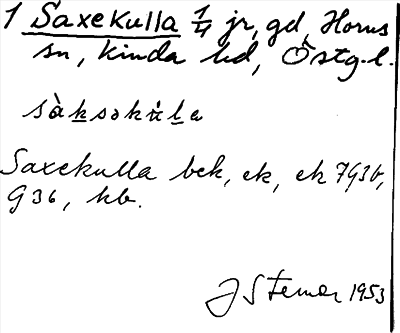 1 Saxekulla 1/4 jr, gd, Horns
sn, Kinda hd, Östg. l.
sàksəkùla
Saxekulla bek, ek, ek 7G3b,
G36, hb.
J Sterner 1953